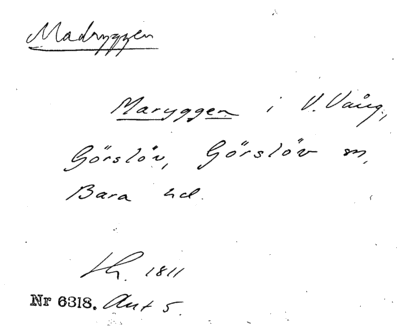 Madryggen
Maryggen i V. Vång,
Görslöv, Görslöv sn,
Bara hd.
Lh. 1811
Nr 6318. Akt 5.